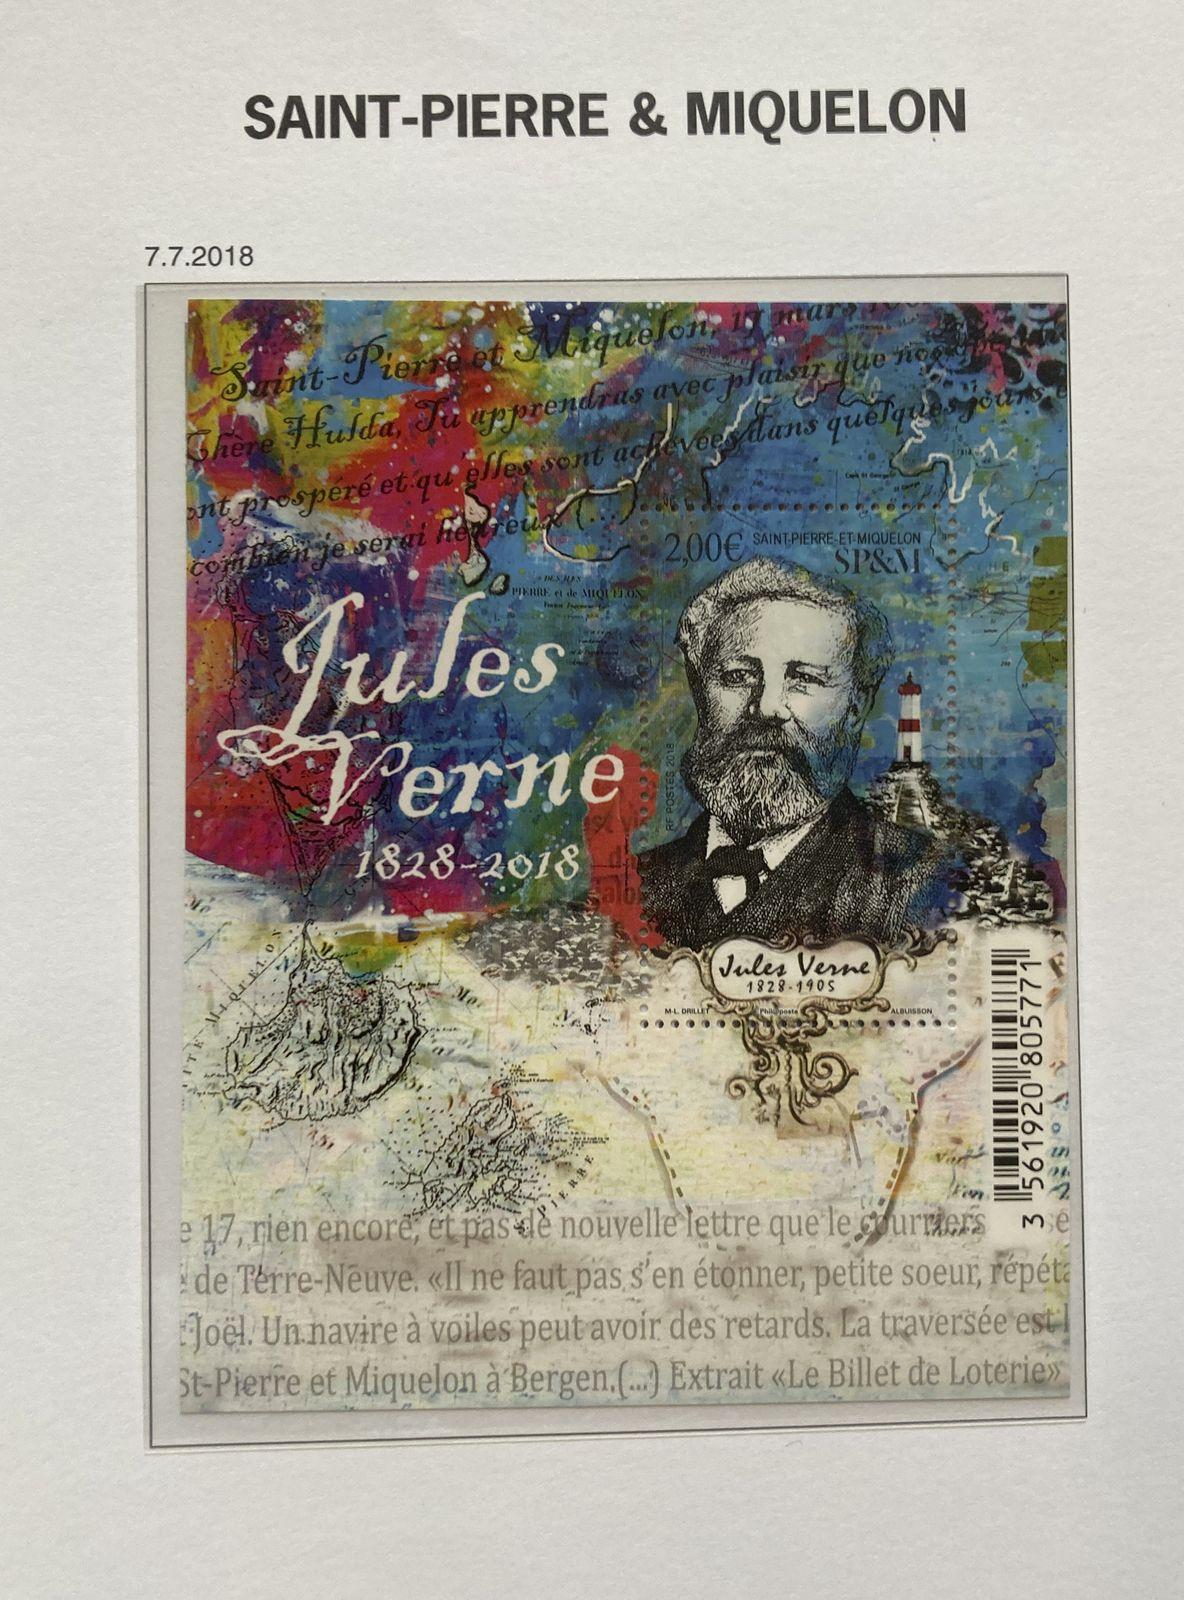 SAINT-PIERRE & MIQUELON
7.7.2018
Saint-Pierre et Miquelon, 17 mars
Chère Hulda, Tu apprendras avec plaisir que nos
ont prospéré et qu'elles sont achevées dans quelques jours
combien je serai heureux (...)
2,00€ SAINT-PIERRE-ET-MIQUELON
SP&M
DES ILES
PIERRE et de MIQUELON
Jules
Verne
1828-2018
RF POSTES 2018
Jules Verne
1828-1905
M-L. DRILLET Phil@poste ALBUISSON
MIQUELON
PIERRE
3 561920 805771
e 17, rien encore, et pas de nouvelle lettre que le courriers se
de Terre-Neuve. «Il ne faut pas s'en étonner, petite soeur, répéta
t Joël. Un navire à voiles peut avoir des retards. La traversée est l
St-Pierre et Miquelon à Bergen.(...) Extrait «Le Billet de Loterie»